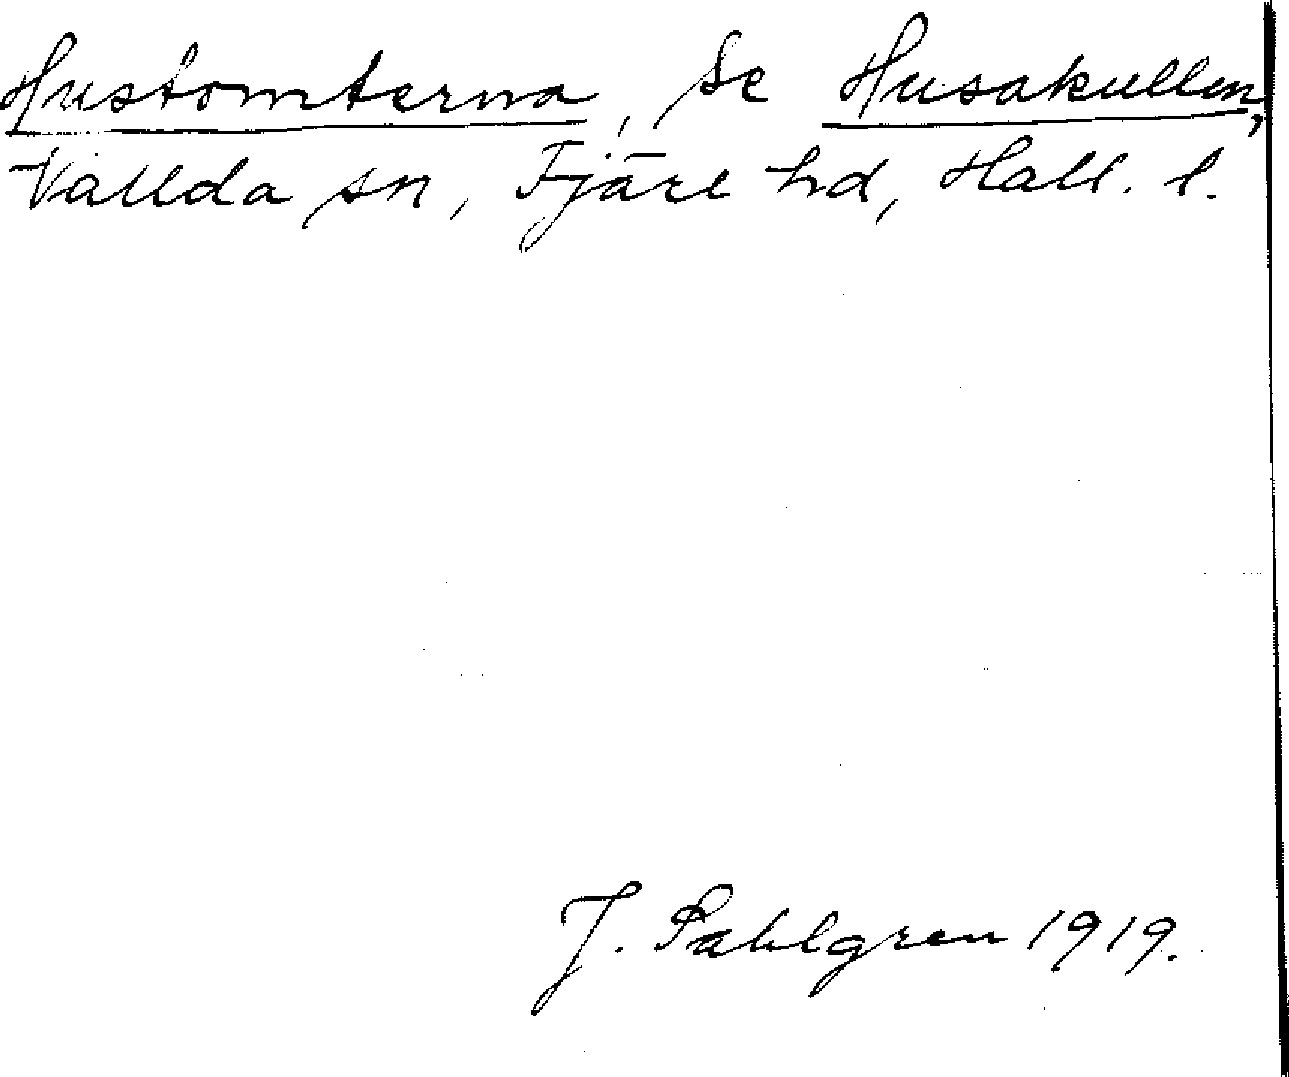 Hustomterna, se Husakullen,
Vallda sn, Fjäre hd, Hall. l.
J. Sahlgren 1919.